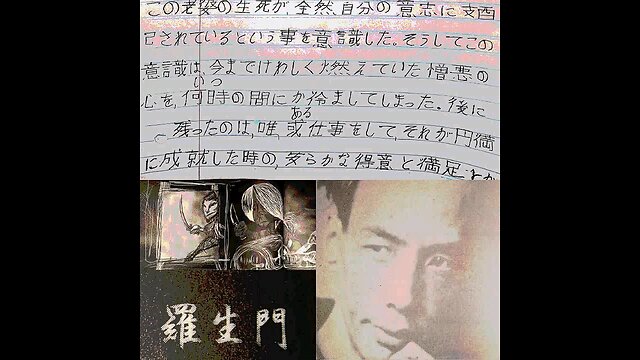 この老婆の生死が、全然、自分の意志に支酉
己されているという事を意識した。そうしてこの
意識は、今までけわしく燃えていた憎悪の
いつ
心を、何時の間にか冷ましてしまった。後に
ある
残ったのは、唯、或仕事をして、それが円満
に成就した時の、安らかな得意と満足とが
羅生門